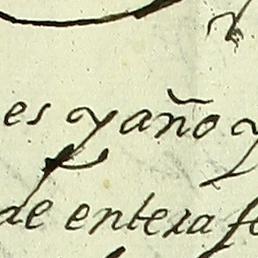 es y año y
de entera fe